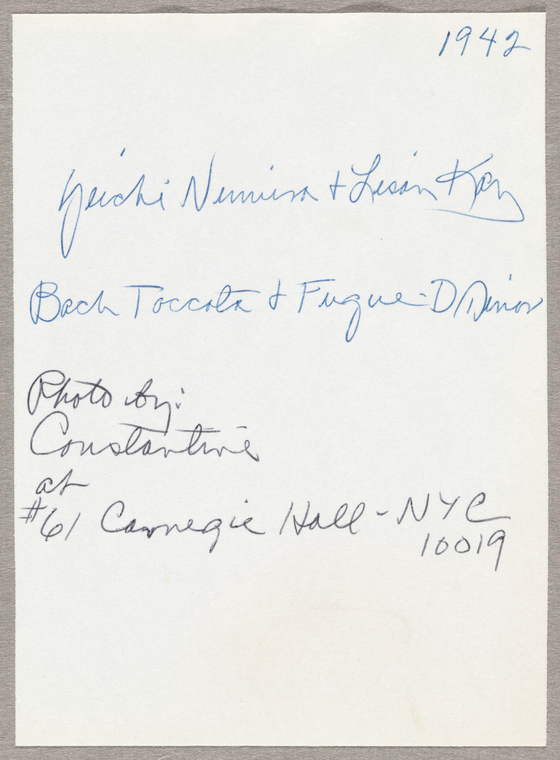 1942
Yeichi Nimura + Lisan Kay
Bach Toccata & Fugue - D Minor
Photo by:
Constantine
at
#61 Carnegie Hall - NYC
10019